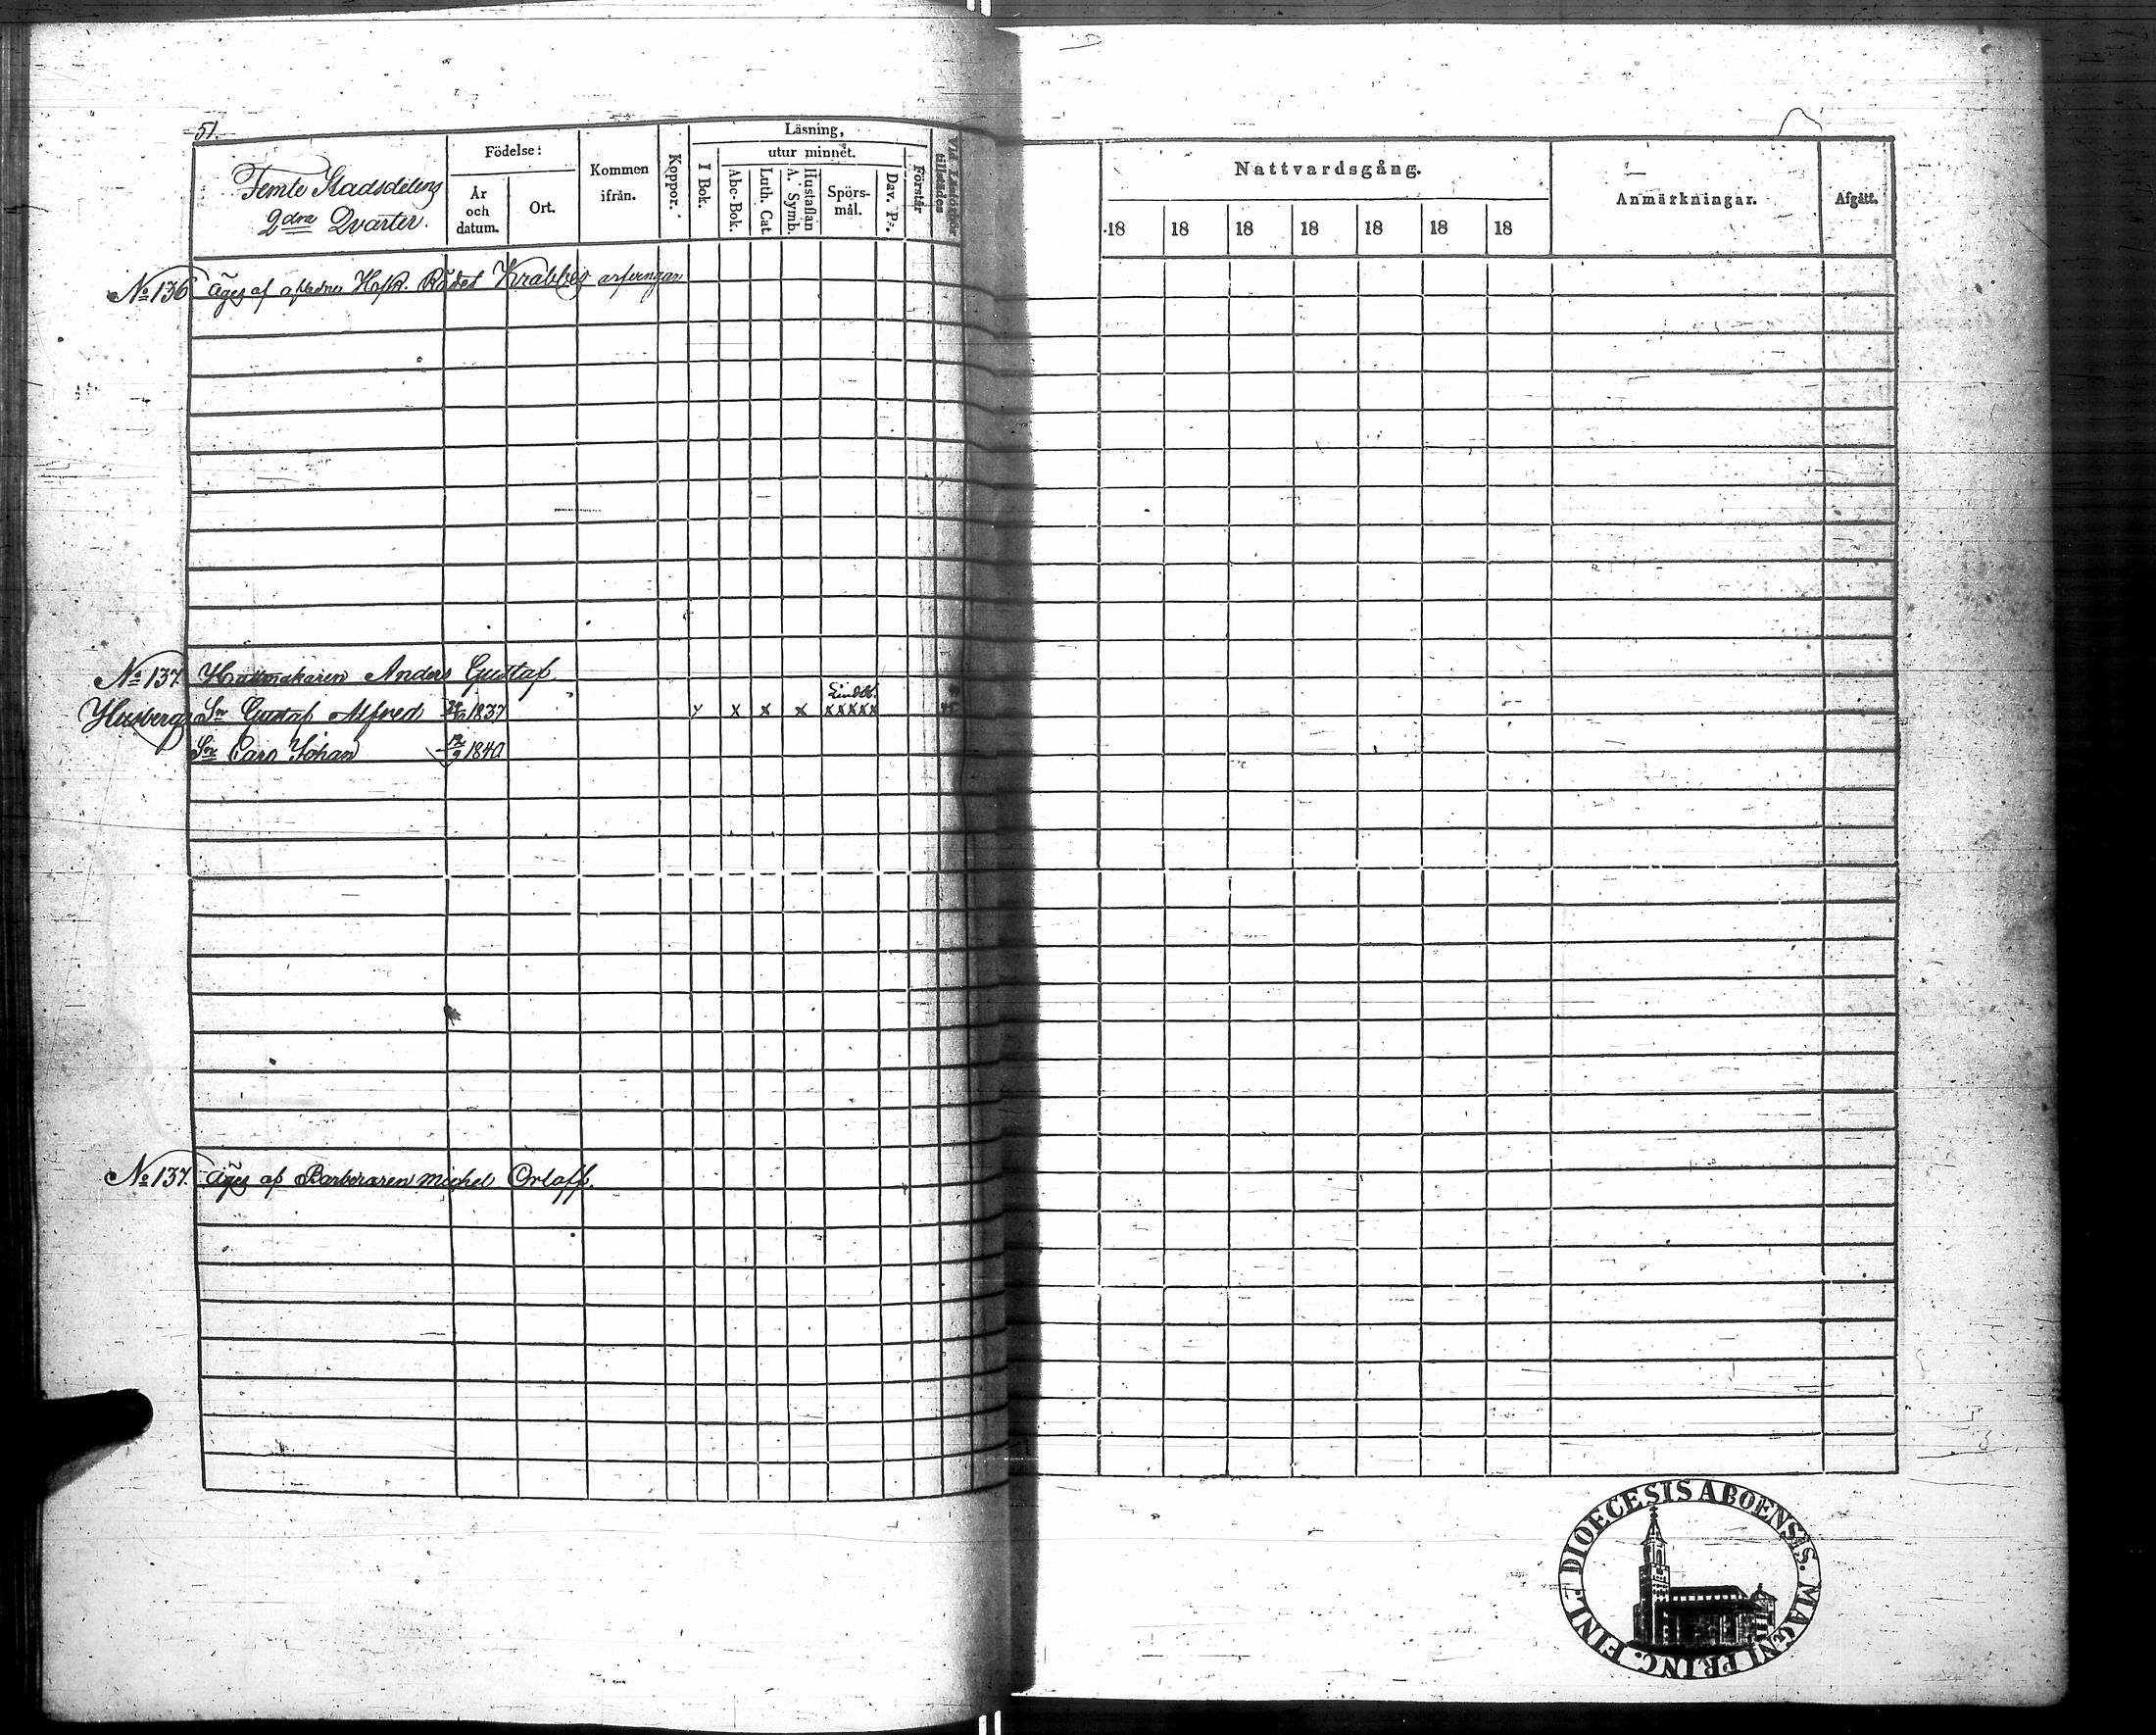 51.
Femte Stadsdelens
2dra Qvarter.
Födelse:
År
och
datum.
Ort.
Kommen
ifrån.
Koppor.
Läsning,
I Bok.
utur minnet.
Abc-Bok.
Luth. Cat.
Hustaflan
A. Symb.
Spörs-
mål.
Dav. Ps.
Förstår
Vid Läsförhör
tillstädes
Nattvardsgång.
18 18 18 18 18 18 18
Anmärkningar.
Afgått.
No 136 äges af aflidne HofR. Rådet Krabbes arfvingar
No 137. Hattmakaren Anders Gustaf
Lindbl.
Son Gustaf Alfred 1837 x x x x xxxxx 45
Son Carl Johan 12/9 1840.
No 137. äges af Barberaren Michel Orloff.
DIOECESIS ABOENSIS. MAGNI PRINC. FINL.